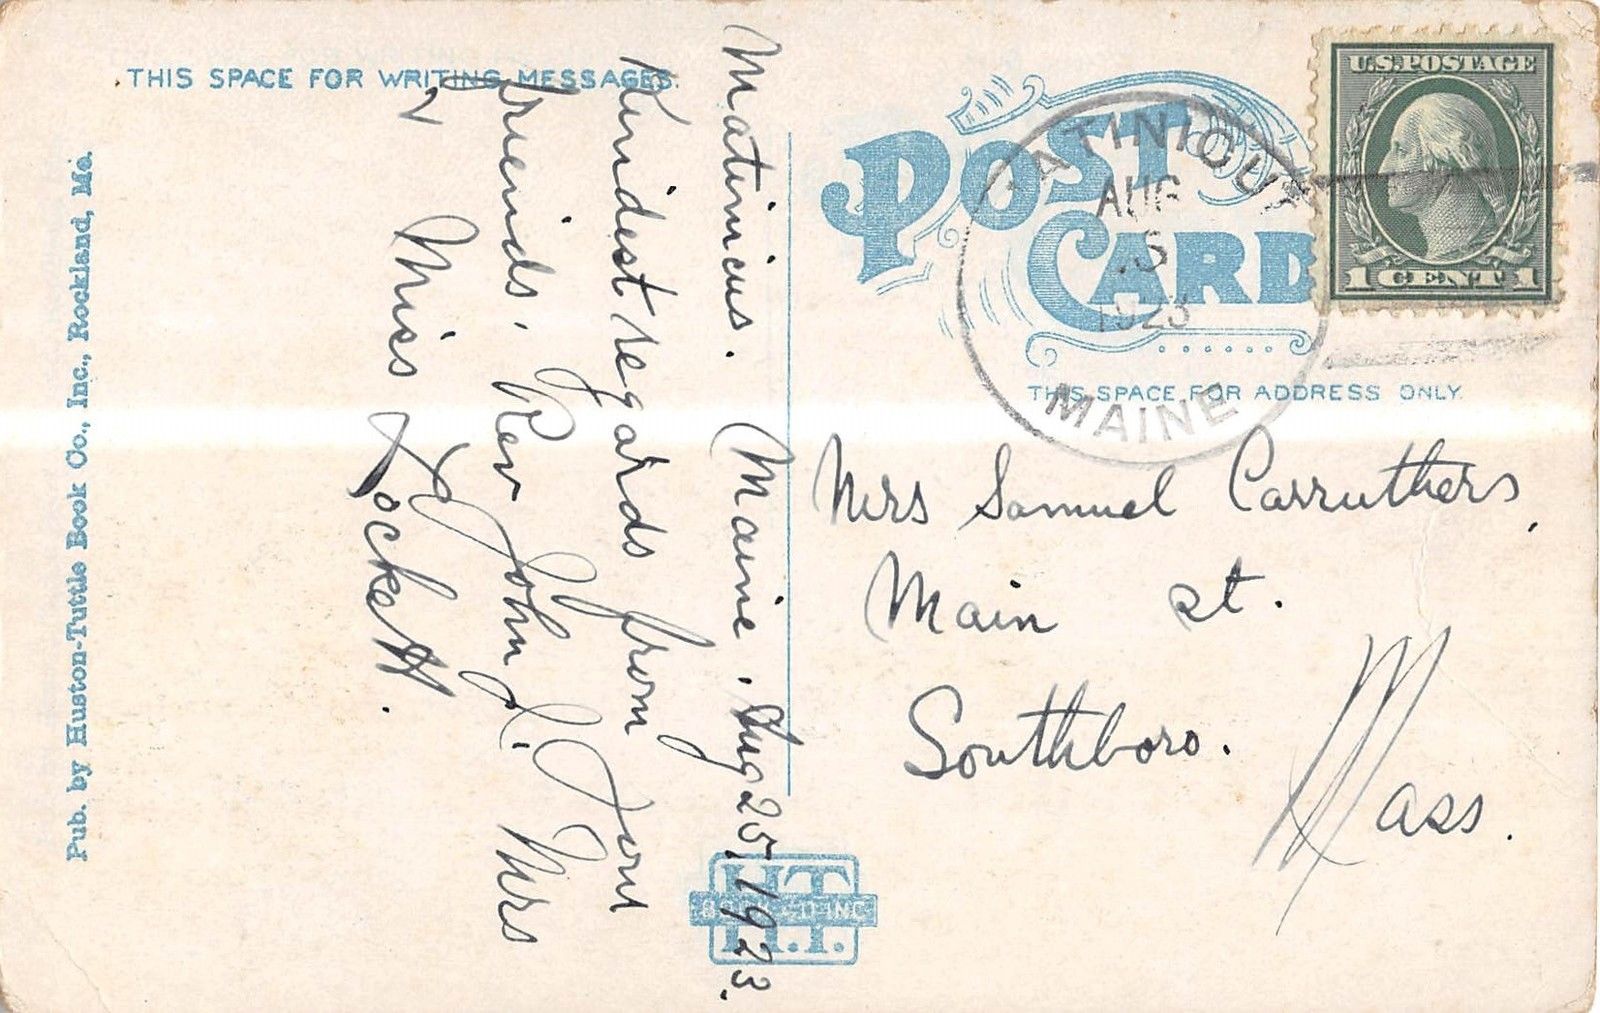 THIS SPACE FOR WRITING MESSAGES.
POST CARD
U.S. POSTAGE
1 CENT 1
ATINICUS
AUG
1923
MAINE
THIS SPACE FOR ADDRESS ONLY.
Pub. by Huston-Tuttle Book Co., Inc., Rockland, Me.
Matinicus. Maine. Aug 25, 1923.
Kindest regards from your
friends, Rev John L. Mrs
& Miss Lockett.
Mrs Samuel Carruthers,
Main St.
Southboro.
Mass.
H.T.
BOOK CO INC